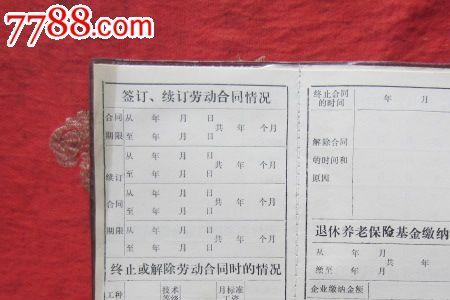 7788.com
签订、续订劳动合同情况
合同
期限
从 年 月 日
至 年 月 日
共 年 个月
续订
合同
期限
从 年 月 日
至 年 月 日
共 年 个月
从 年 月 日
至 年 月 日
共 年 个月
从 年 月 日
至 年 月 日
共 年 个月
终止或解除劳动合同时的情况
工种
技术
等级
月标准
工资
终止合同
的时间
年 月
解除合同
的时间和
原因
退休养老保险基金缴纳
从 年 月
共 年
续至 年 月
企业缴纳金额